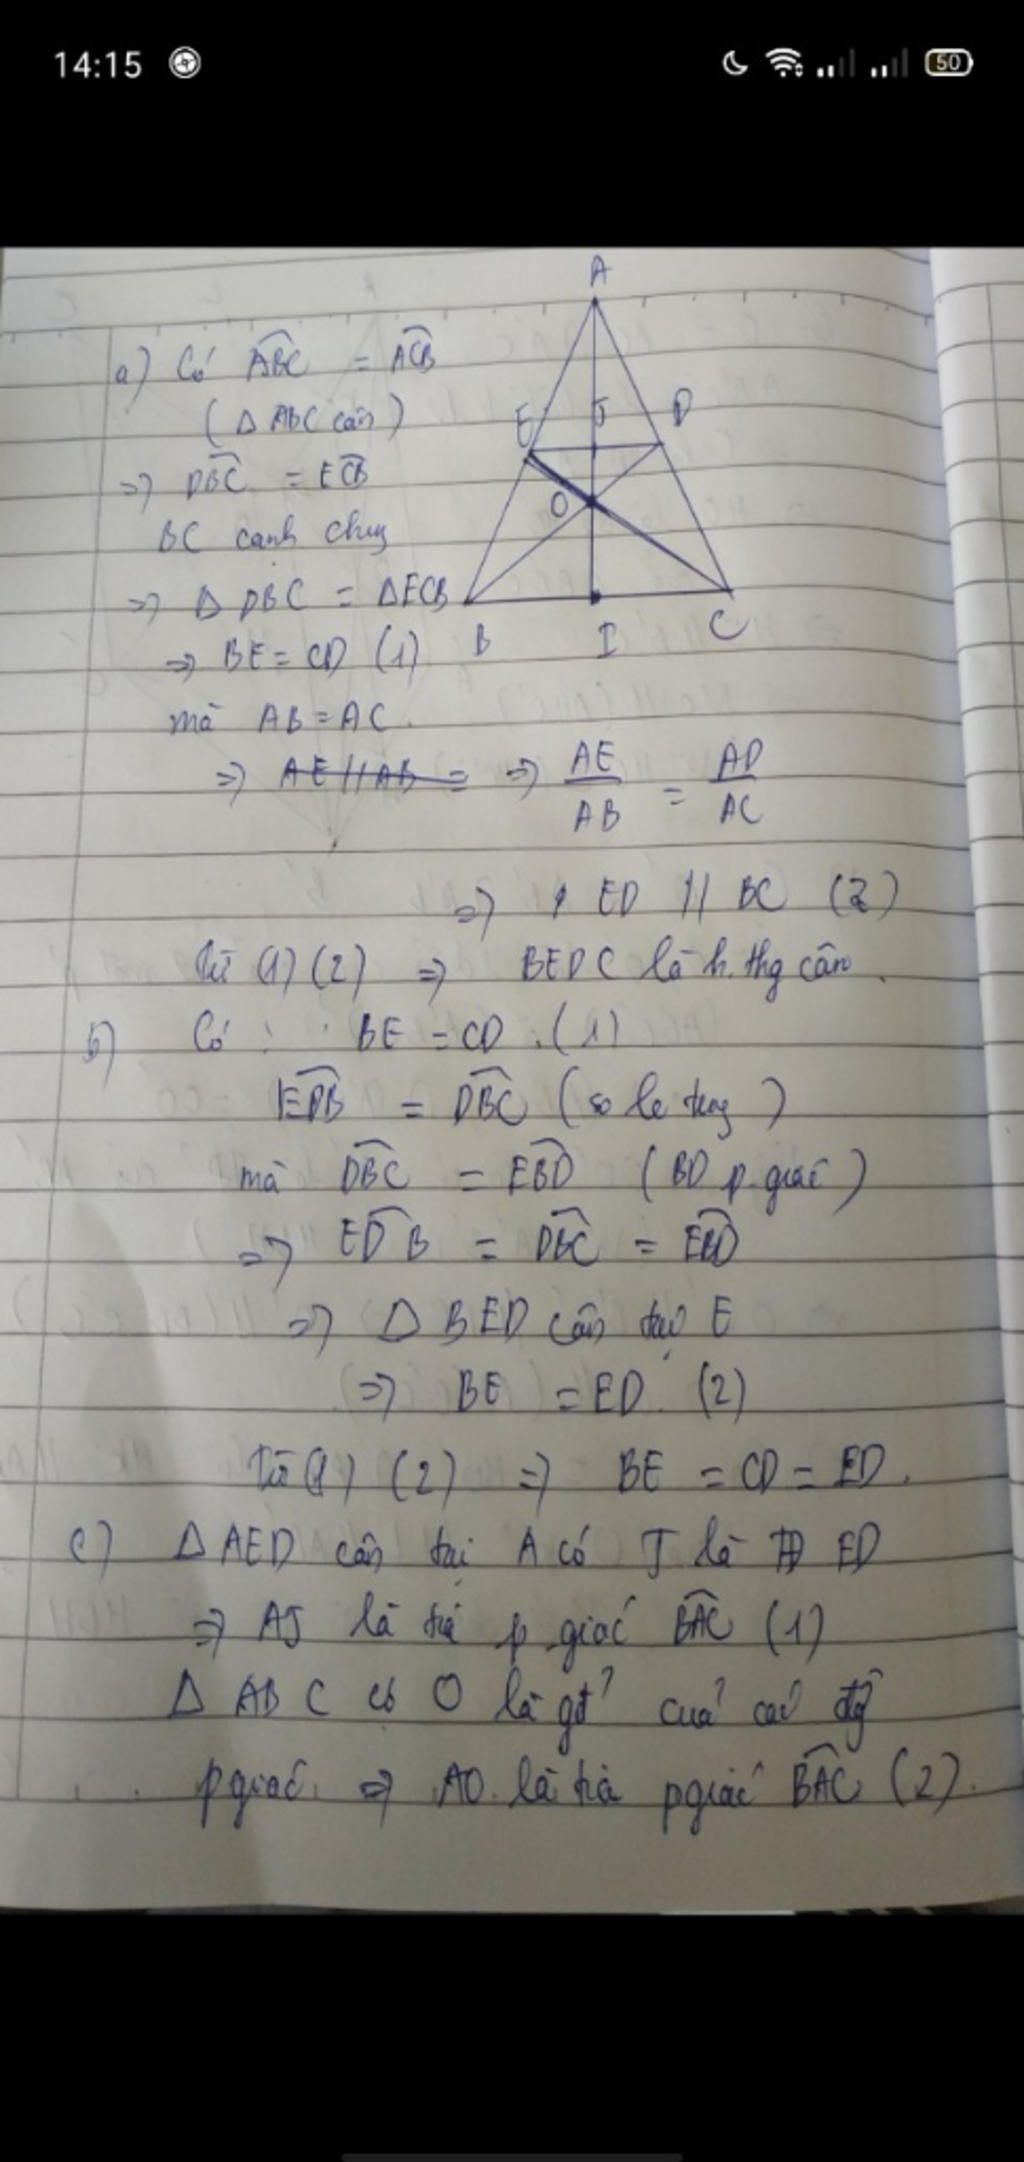 14:15
50
A
a) Có ABC = ACB
(Δ ABC cân)
E J D
=> DBC = ECB
O
BC cạnh chung
=> Δ DBC = ΔECB
B I C
=> BE = CD (1)
mà AB = AC.
=> AE // AB = => AE/AB = AD/AC
=> ED // BC (2)
Từ (1) (2) => BEDC là h. thg cân.
b) Có : BE = CD . (1)
EDB = DBC (so le trong)
mà DBC = EBD (BD p. giác)
=> EDB = DBC = EBD
=> Δ BED cân tại E
=> BE = ED. (2)
Từ (1) (2) => BE = CD = ED.
c) Δ AED cân tại A có J là TĐ ED
=> AJ là tia p giác BAC (1)
Δ ABC có O là gđ của các đg
p giác. => AO là tia p giác BAC (2).